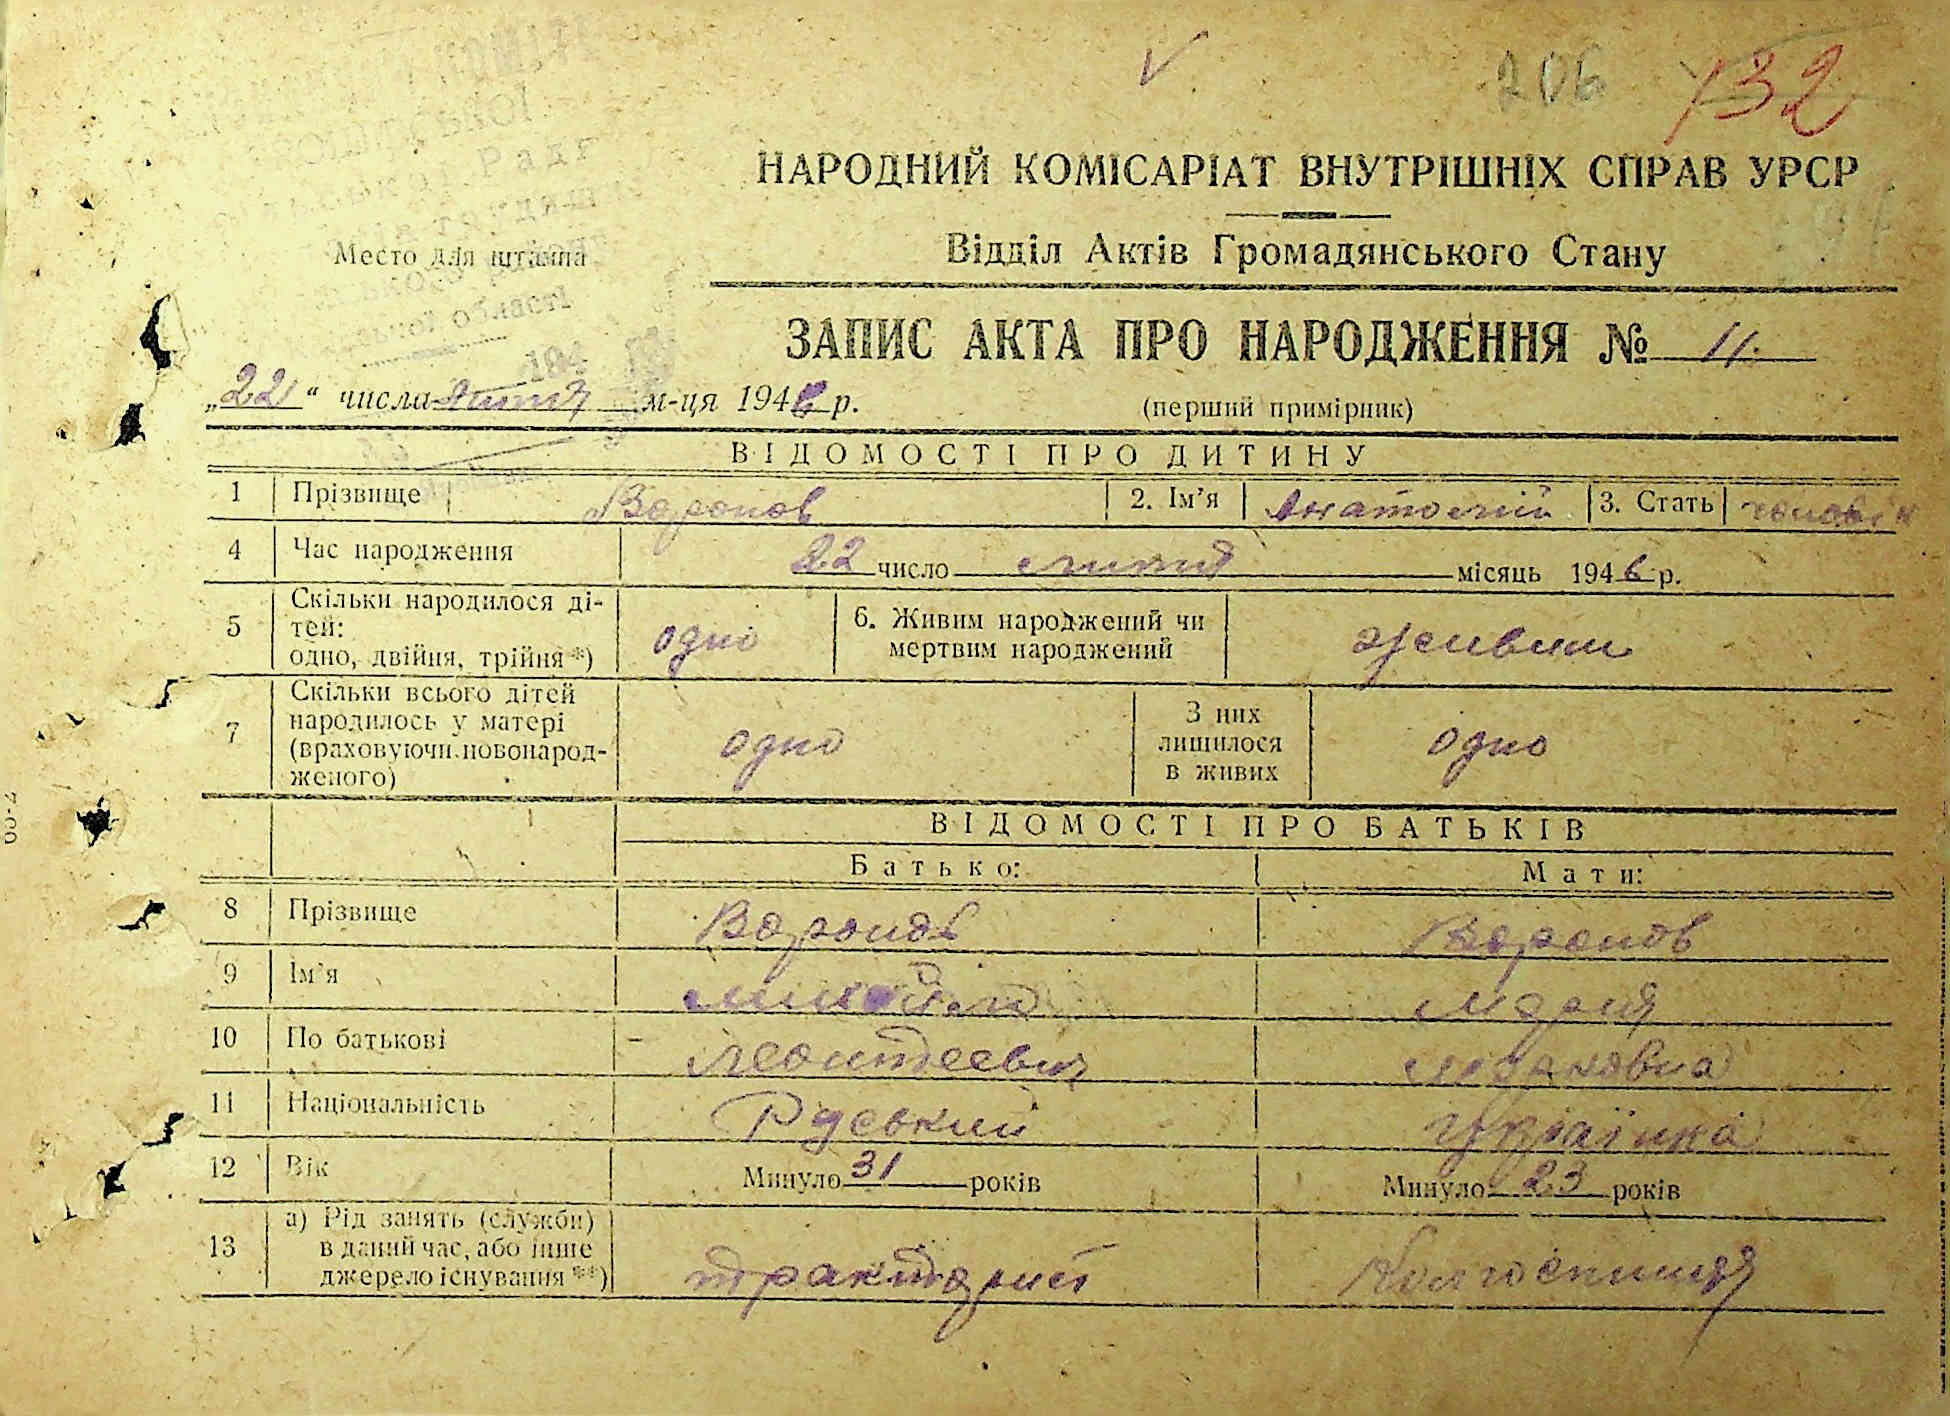 206 132
НАРОДНИЙ КОМІСАРІАТ ВНУТРІШНІХ СПРАВ УРСР
Відділ Актів Громадянського Стану
Место для штампа
області
ЗАПИС АКТА ПРО НАРОДЖЕННЯ № 11.
„22“ числа липня м-ця 1946 р.
(перший примірник)
ВІДОМОСТІ ПРО ДИТИНУ
1 Прізвище Воронов 2. Ім'я Анатолій 3. Стать чоловік
4 Час народження 22 число липня місяць 1946 р.
5 Скільки народилося ді-
тей:
одно, двійня, трійня*) одно
6. Живим народжений чи
мертвим народжений живим
7 Скільки всього дітей
народилось у матері
(враховуючи новонарод-
женого) одно
З них
лишилося
в живих одно
ВІДОМОСТІ ПРО БАТЬКІВ
Батько: Мати:
8 Прізвище Воронов Воронов
9 Ім'я Марія
10 По батькові Леонтеевич
11 Національність Руський Українка
12 Вік Минуло 31 років Минуло 23 років
13 а) Рід занять (служби)
в даний час, або інше
джерело існування**) тракторист Колгоспниця